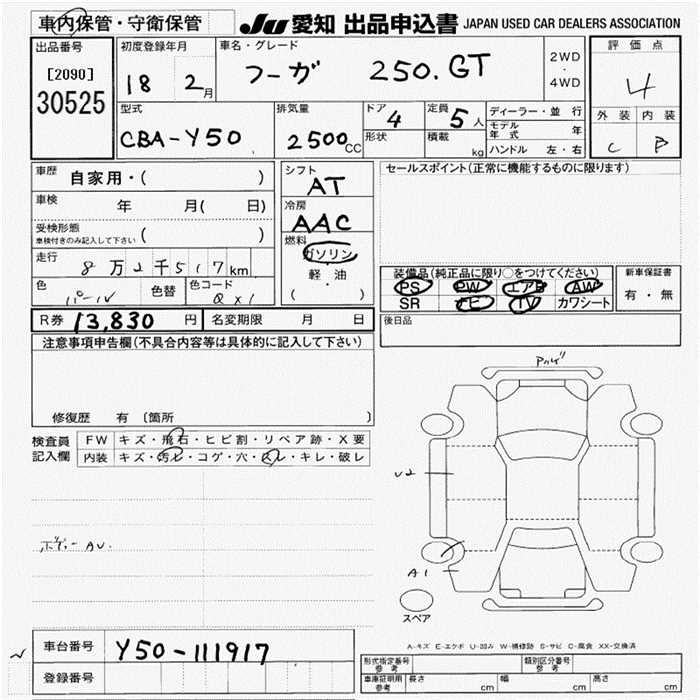 車内保管・守衛保管
JU 愛知 出品申込書 JAPAN USED CAR DEALERS ASSOCIATION
出品番号
[2090]
30525
初度登録年月
18 2月
車名・グレード
フーガ 250.GT
2WD
・
4WD
評価点
4
外装 内装
C B
型式
CBA-Y50
排気量
2500CC
ドア
4
形状
定員
5人
積載
kg
ディーラー・並行
モデル年式 年
ハンドル 左・右
車歴
自家用・( )
車検 年 月( 日)
受検形態
車検付きのみ記入して下さい ( )
走行 8万2千517km
色 パール 色替 色コード QX1
シフト
AT
冷房
AAC
燃料
ガソリン
軽・油
( )
セールスポイント(正常に機能するものに限ります)
装備品(純正品に限り○をつけてください)
PS PW エアB AW
SR ナビ TV カワシート
新車保証書
有・無
後日品
R券 13,830円 名変期限 月 日
注意事項申告欄(不具合内容等は具体的に記入して下さい)
修復歴 有 〔箇所 〕
検査員
記入欄
FW キズ・飛石・ヒビ割・リペア跡・X要
内装 キズ・汚レ・コゲ・穴・スレ・キレ・破レ
ボデーAU.
U2
A1
スペア
A-キズ E-エクボ U-凹み W-補修跡 S-サビ C-腐食 XX-交換済
車台番号 Y50-111917
登録番号
形式指定番号
参考
類別区分番号
参考
車庫証明用
参考
長さ cm 幅 cm 高さ cm